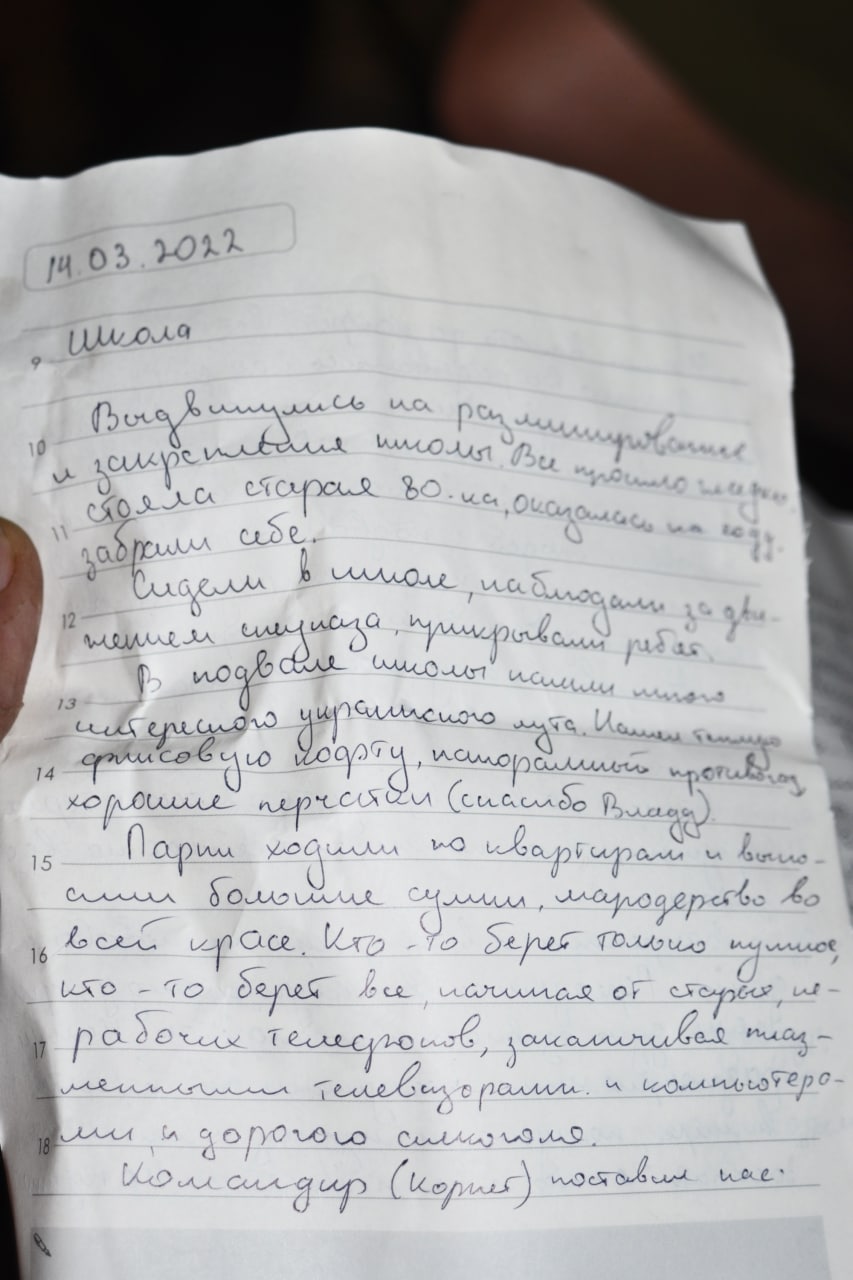 14.03.2022
9 Школа
10 Выдвинулись на разминирование
и закрепление школы. Все прошло гладко.
11 стояла старая 80-ка, оказалась на ходу.
забрали себе.
12 Сидели в школе, наблюдали за дви-
жением спецназа, прикрывали ребят.
13 В подвале школы нашли много
интересного украинского лута. Нашел теплую
14 флисовую кофту, панорамный противогаз
хорошие перчатки (спасибо Владу).
15 Парни ходили по квартирам и выно-
сили большие сумки, мародерство во
16 всей красе. Кто-то берет только нужное,
кто-то берет все, начиная от старых, не-
17 рабочих телефонов, заканчивая плаз-
менными телевизорами. и компьютера-
18 ми, и дорогого алкоголя.
Командир (Корнет) поставил нас.